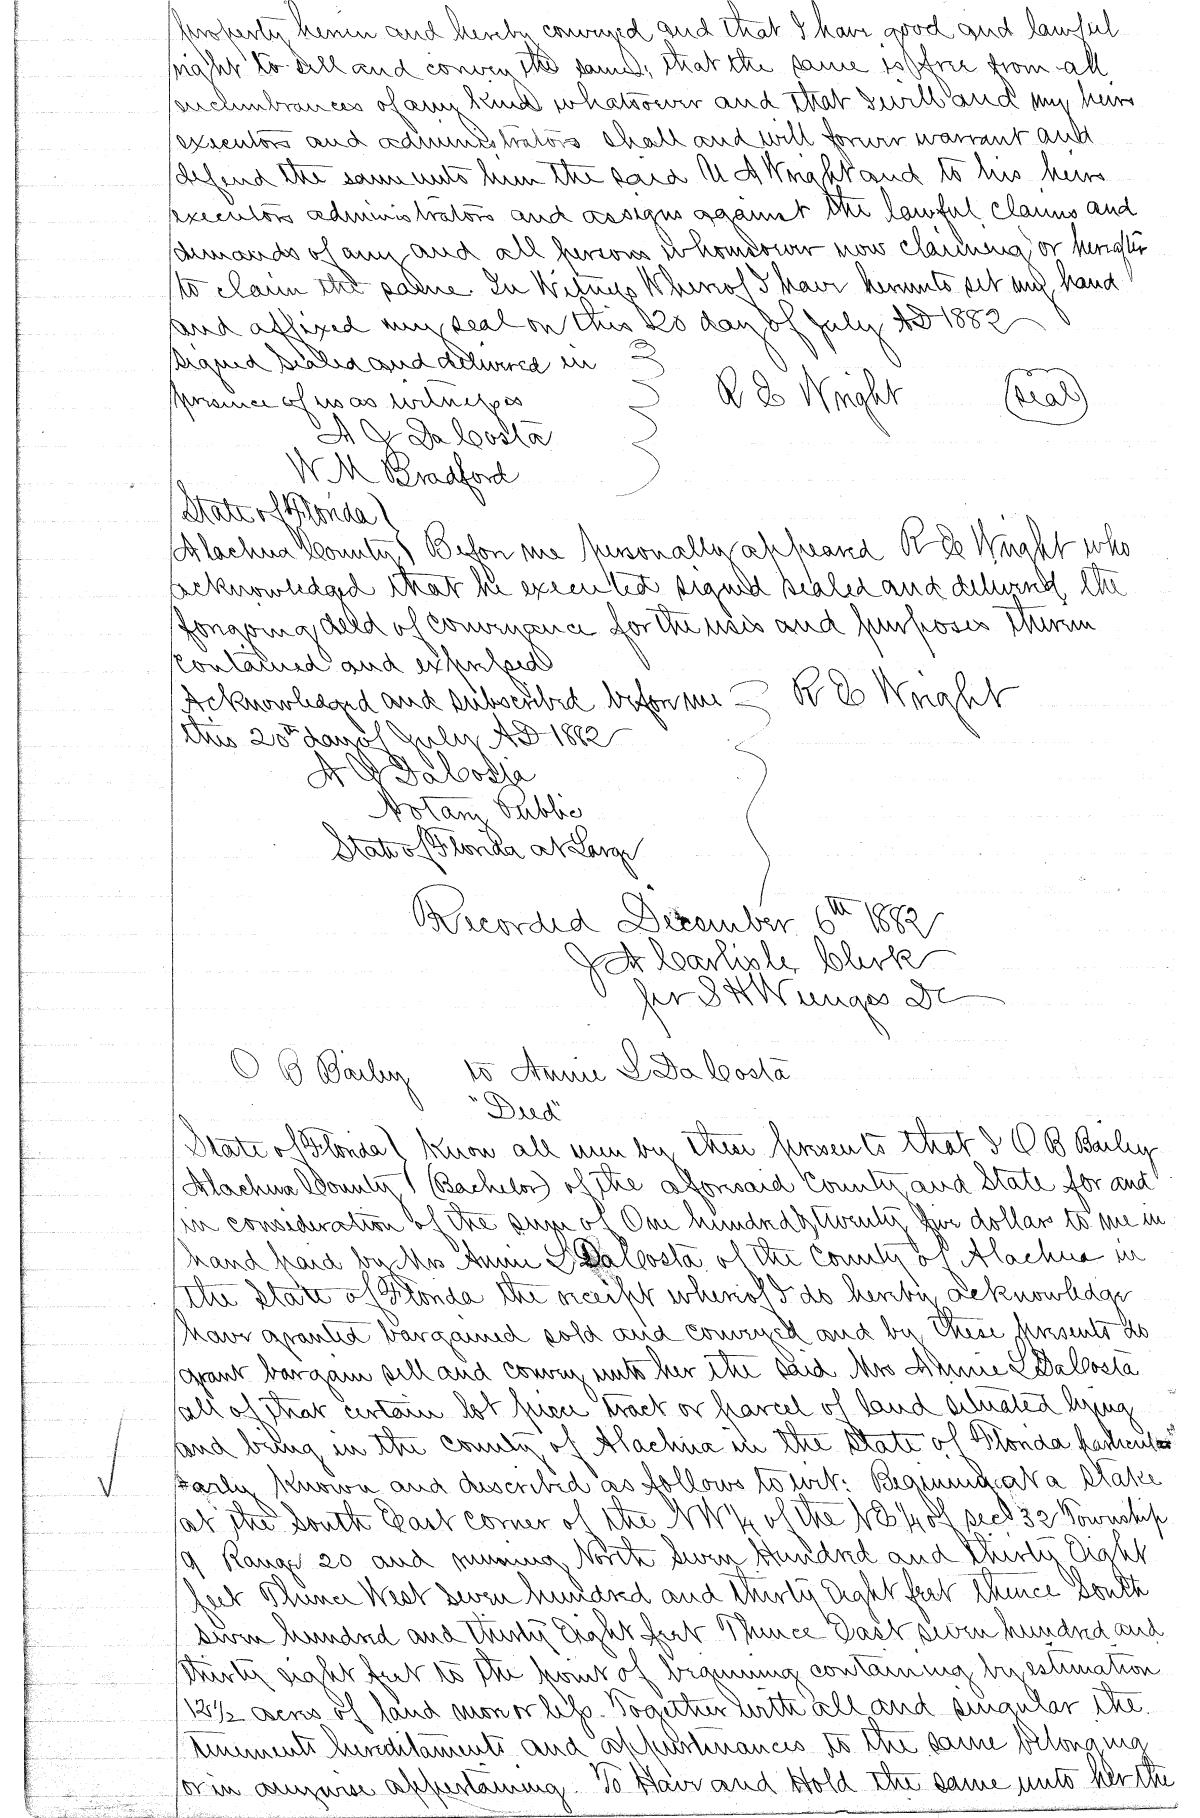 property herein and hereby conveyed and that I have good and lawful
right to sell and convey the same, that the same is free from all
incumbrances of any kind whatsoever and that I will and my heirs
executors and administrators shall and will forever warrant and
defend the same unto him the said U A Wright and to his heirs
executors administrators and assigns against the lawful claims and
demands of any and all persons whomsoever now claiming or hereafter
to claim the same. In Witness Whereof I have hereunto set my hand
and affixed my seal on this 20 day of July AD 1882
Signed Sealed and delivered in
presence of us as witnesses
R E Wright (seal)
A J DaCosta
W M Bradford
State of Florida
Alachua County Before me personally appeared R E Wright who
acknowledged that he executed signed sealed and delivered the
foregoing deed of conveyance for the uses and purposes therein
contained and expressed
Acknowledged and subscribed before me R E Wright
this 20th day of July AD 1882
A J DaCosta
Notary Public
State of Florida at Large
Recorded December 6th 1882
J A Carlisle Clerk
per S H Wienges DC
O B Bailey to Annie L DaCosta
"Deed"
State of Florida Know all men by these presents that I O B Bailey
Alachua County (Bachelor) of the aforesaid County and State for and
in consideration of the sum of One hundred & twenty five dollars to me in
hand paid by Mrs Annie L DaCosta of the County of Alachua in
the State of Florida the receipt whereof I do hereby acknowledge
have granted bargained sold and conveyed and by these presents do
grant bargain sell and convey unto her the said Mrs Annie L DaCosta
all of that certain lot piece tract or parcel of land situated lying
and being in the county of Alachua in the State of Florida particular
larly known and described as follows to wit: Beginning at a Stake
at the South East corner of the NW 1/4 of the NE 1/4 of sec 32 Township
9 Range 20 and running North Seven Hundred and thirty Eight
feet Thence West Seven hundred and thirty Eight feet thence South
Seven hundred and thirty Eight feet Thence East seven hundred and
thirty eight feet to the point of beginning containing by estimation
12 1/2 acres of land more or less. Together with all and singular the
tenements hereditaments and appurtenances to the same belonging
or in anywise appertaining. To Have and Hold the same unto her the